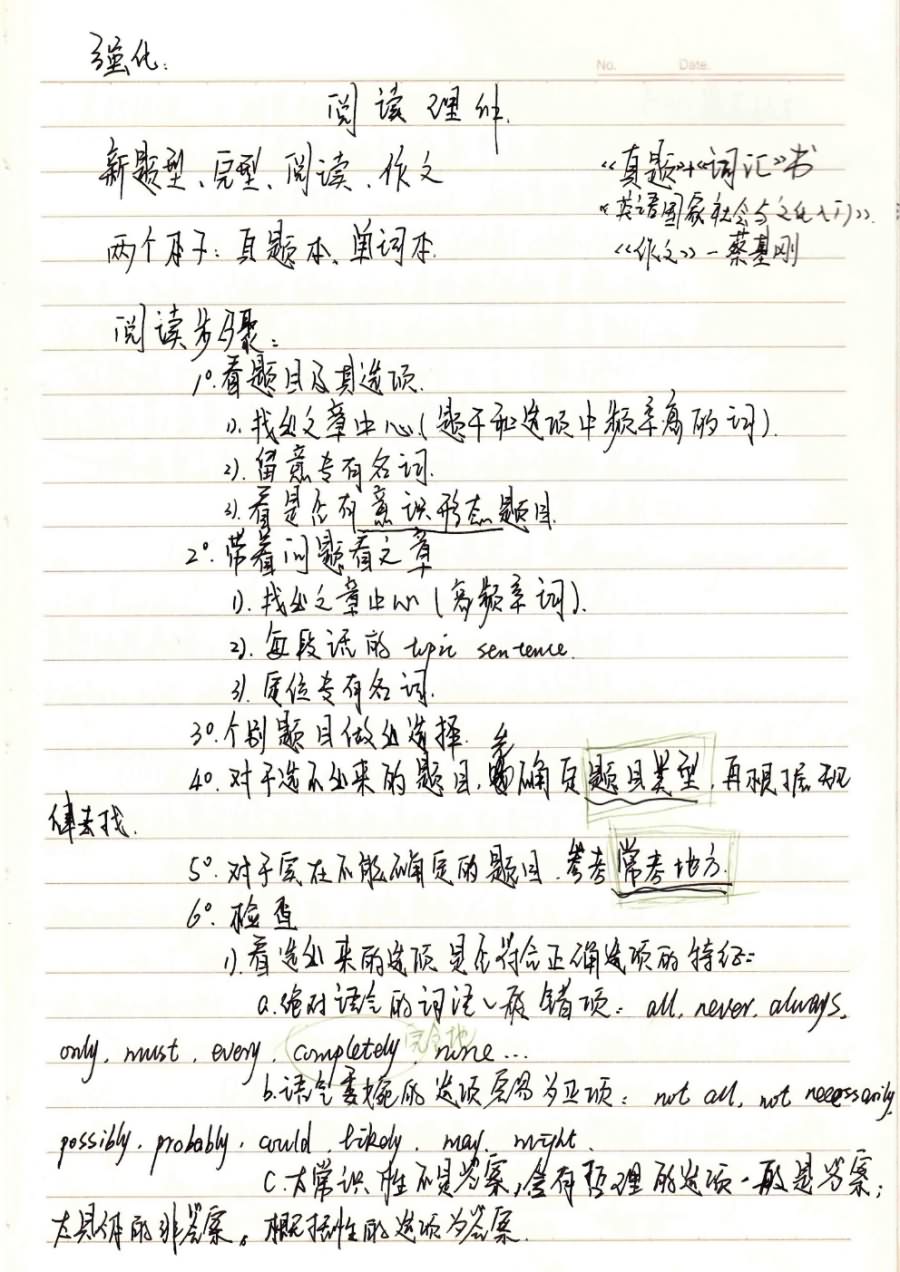 强化:
No. Date.
阅读理解.
新题型、完型、阅读、作文
《真题》+《词汇》书
《英语国家社会与文化入门》.
两个本子:真题本、单词本.
《作文》—蔡基刚
阅读步骤:
1°.看题目及其选项.
1).找出文章中心(题干和选项中频率高的词).
2).留意专有名词.
3).看是否有意识形态题目.
2°.带着问题看文章
1).找出文章中心(高频率词).
2).每段话的topic sentence.
3).定位专有名词.
3°.个别题目做出选择.
4°.对于选不出来的题目,先确定题目类型,再根据规
律去找.
5°.对于实在不能确定的题目.参考常考地方.
6°.检查
1).看选出来的选项是否符合正确选项的特征:
a.绝对语气的词语一般错项:all, never, always,
only, must, every, completely 完全地, none...
b.语气委婉的选项容易为正项:not all, not necessarily,
possibly, probably, could, likely, may, might.
C.太常识性不是答案,含有哲理的选项一般是答案;
太具体的非答案。概括性的选项为答案.